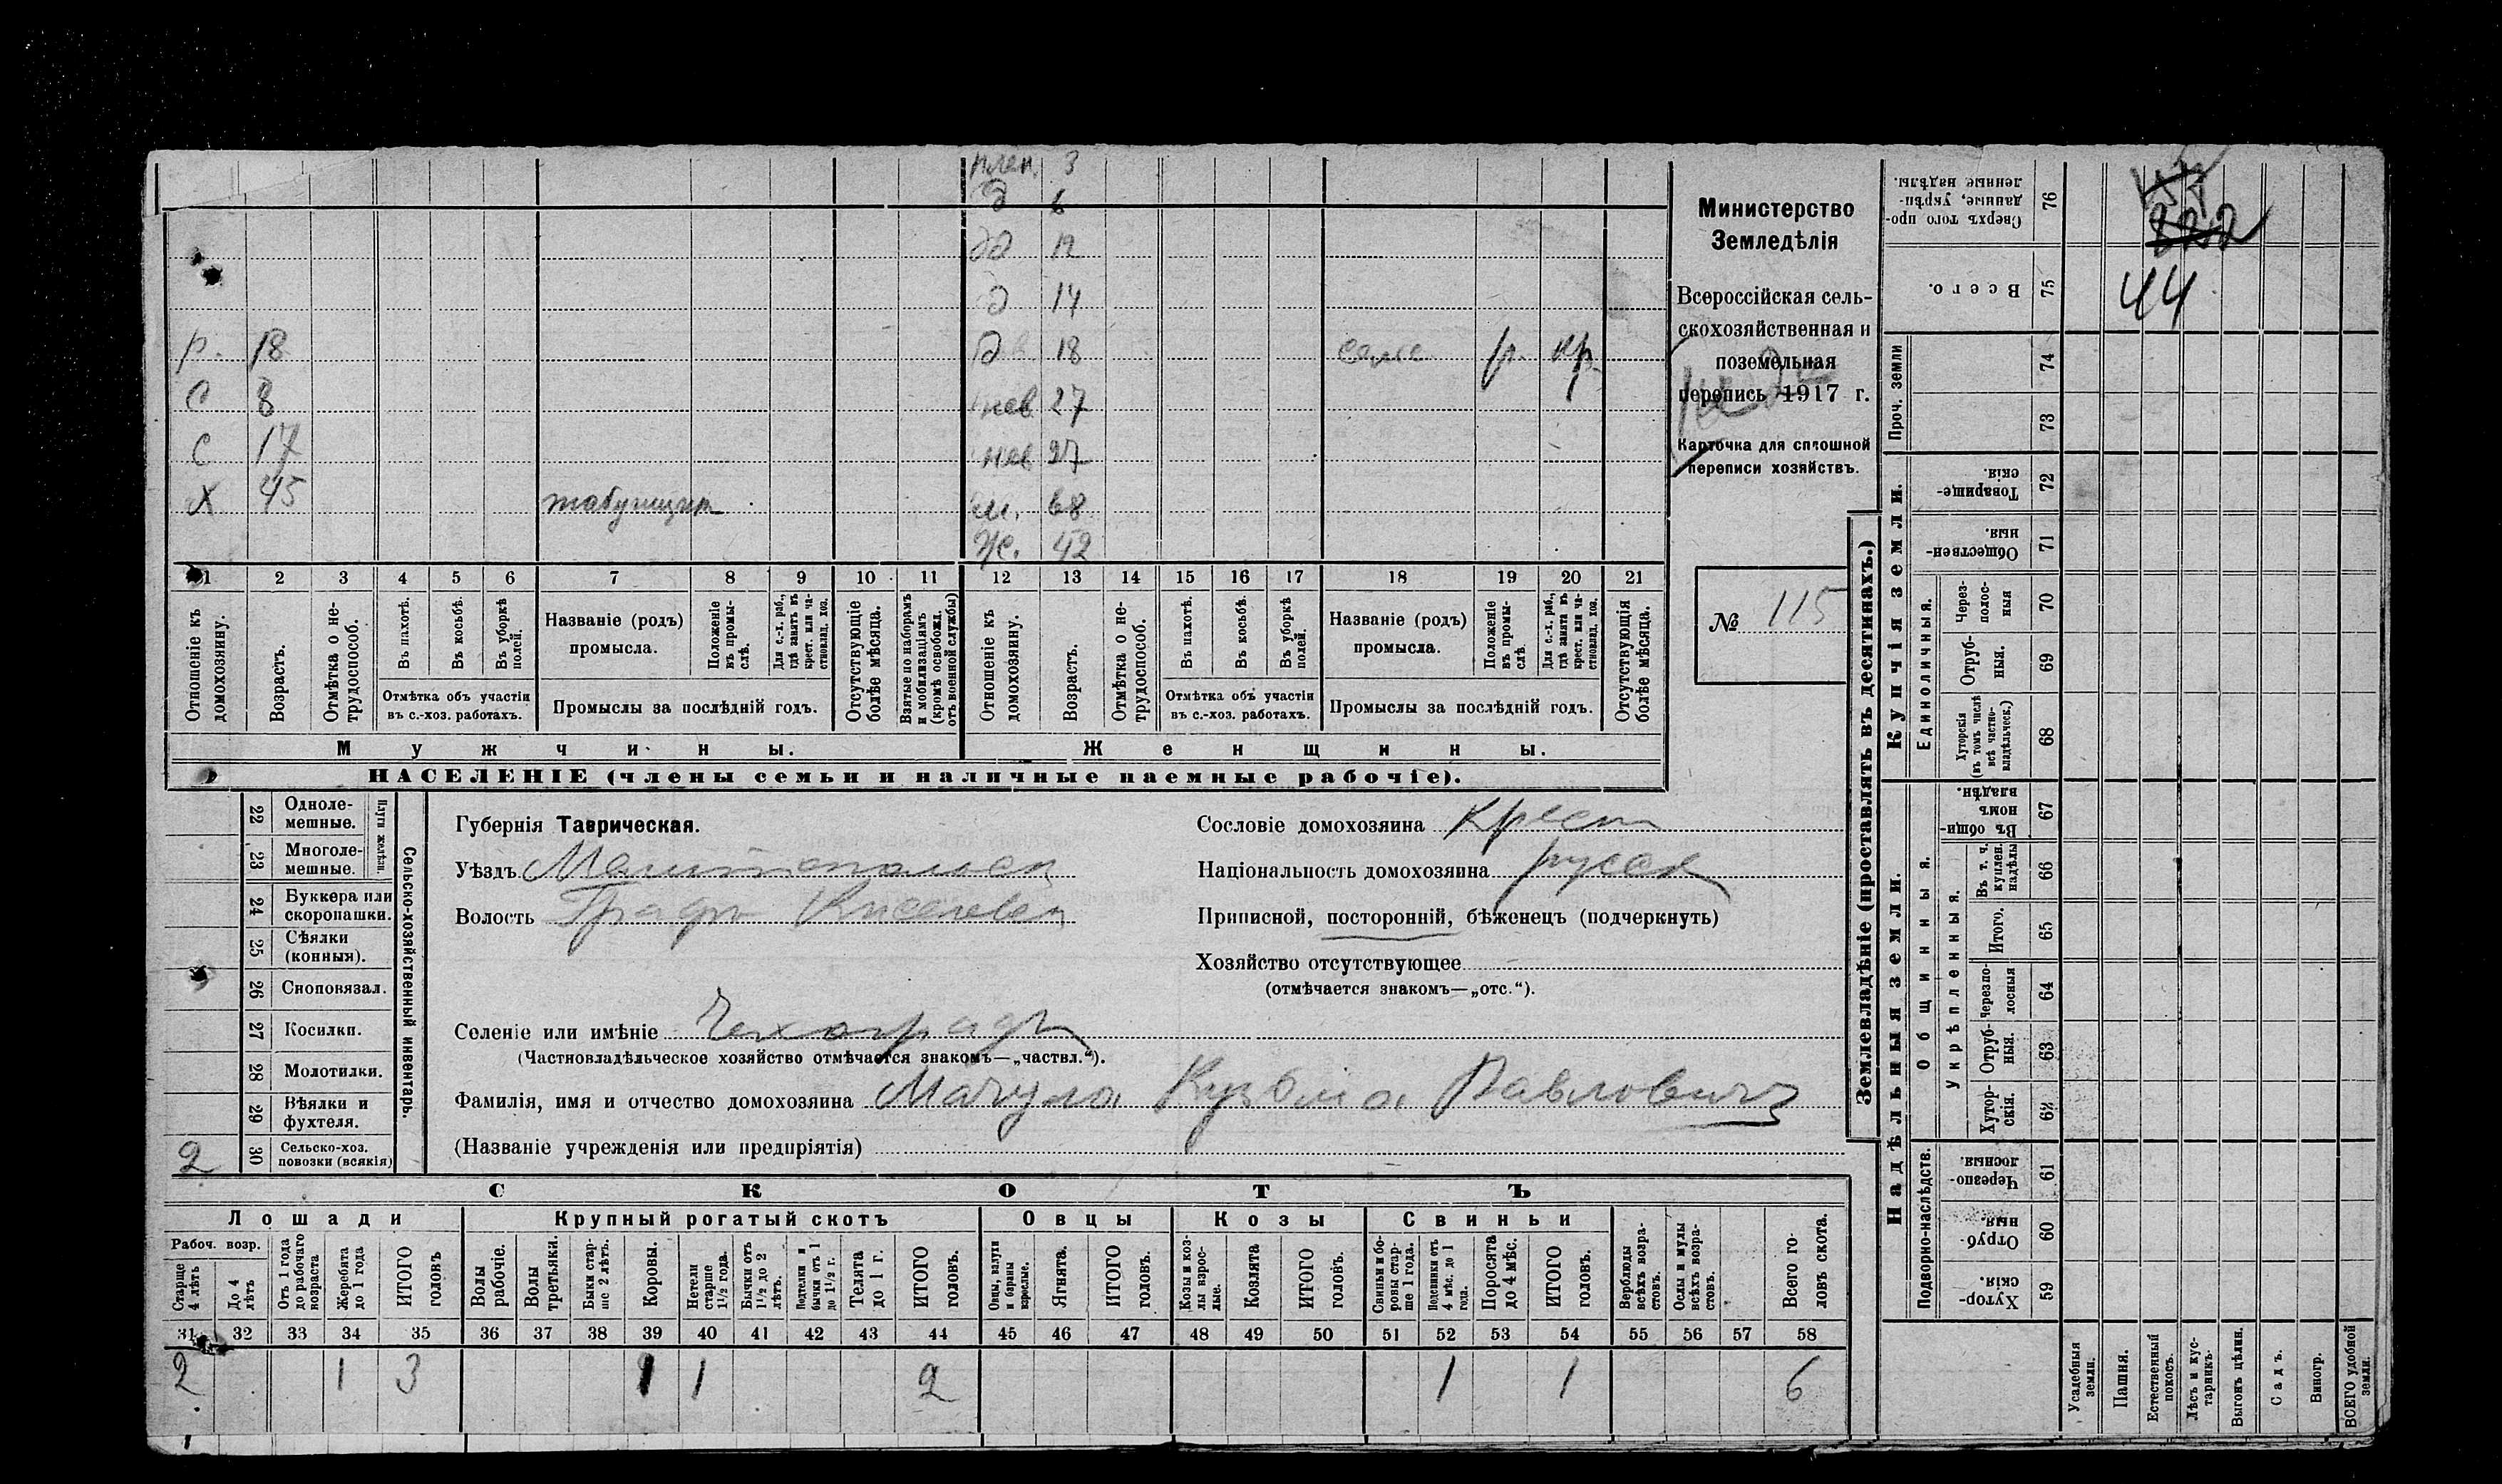 плен. 3
д 6
дд 12
д 14
р. 18 д 18 р. кр.
с 8 нев 27
с 17 нев 27
х 45 табунщик м. 68
ж. 42
1 2 3 4 5 6 7 8 9 10 11 12 13 14 15 16 17 18 19 20 21
Отношеніе къ домохозяину.
Возрастъ.
Отмѣтка о нетрудоспособ.
Въ пахотѣ.
Въ косьбѣ.
Въ уборкѣ полей.
Отмѣтка объ участіи въ с.-хоз. работахъ.
Названіе (родъ) промысла.
Положеніе въ промыслѣ.
Для с.-х. раб., гдѣ занятъ въ крест. или частновлад. хоз.
Промыслы за послѣдній годъ.
Отсутствующіе болѣе мѣсяца.
Взятые по наборамъ и мобилизаціямъ (кромѣ освобожд. отъ военной службы)
Отношеніе къ домохозяину.
Возрастъ.
Отмѣтка о нетрудоспособ.
Въ пахотѣ.
Въ косьбѣ.
Въ уборкѣ полей.
Отмѣтка объ участіи въ с.-хоз. работахъ.
Названіе (родъ) промысла.
Положеніе въ промыслѣ.
Для с.-х. раб., гдѣ занята въ крест. или частновлад. хоз.
Промыслы за послѣдній годъ.
Отсутствующія болѣе мѣсяца.
Мужчины. Женщины.
НАСЕЛЕНІЕ (члены семьи и наличные наемные рабочіе).
Министерство
Земледѣлія
Всероссійская сель-
скохозяйственная и
поземельная
перепись 1917 г.
Карточка для сплошной
переписи хозяйствъ.
№ 115
22 Одноле-
мешные.
23 Многоле-
мешные.
Плуги желѣзн.
24 Буккера или
скоропашки.
25 Сѣялки
(конныя).
26 Сноповязал.
27 Косилки.
28 Молотилки.
29 Вѣялки и
фухтеля.
2 30 Сельско-хоз.
повозки (всякія)
Сельско-хозяйственный инвентарь.
Губернія Таврическая.
Уѣздъ Мелитопольск
Волость Графъ Киселевск
Селеніе или имѣніе Чехоградъ
(Частновладѣльческое хозяйство отмѣчается знакомъ—„частвл.“).
Фамилія, имя и отчество домохозяина Мачула Кузьма Павловичъ
(Названіе учрежденія или предпріятія)
Сословіе домохозяина Крест
Національность домохозяина русск
Приписной, посторонній, бѣженецъ (подчеркнуть)
Хозяйство отсутствующее
(отмѣчается знакомъ—„отс.“).
СКОТЪ
Лошади Крупный рогатый скотъ Овцы Козы Свиньи
Рабоч. возр.
Старше 4 лѣтъ
До 4 лѣтъ
Отъ 1 года до рабочаго возраста
Жеребята до 1 года
ИТОГО головъ
Волы рабочіе.
Волы третьяки.
Быки старше 2 лѣтъ.
Коровы.
Нетели старше 1½ года.
Бычки отъ 1½ до 2 лѣтъ.
Подтелки и бычки отъ 1 до 1½ г.
Телята до 1 г.
ИТОГО головъ.
Овцы, валухи и бараны взрослые.
Ягнята.
ИТОГО головъ.
Козы и козлы взрослые.
Козлята
ИТОГО головъ.
Свиньи и боровы старше 1 года.
Подсвинки отъ 4 мѣс. до 1 года.
Поросята до 4 мѣс.
ИТОГО головъ.
Верблюды всѣхъ возрастовъ.
Ослы и мулы всѣхъ возрастовъ.
Всего головъ скота.
31 32 33 34 35 36 37 38 39 40 41 42 43 44 45 46 47 48 49 50 51 52 53 54 55 56 57 58
2 1 3 1 1 2 1 1 6
Землевладѣніе (проставлять въ десятинахъ.)
Купчія земли.
Надѣльныя земли.
Проч. земли
Единоличныя.
Общинныя.
Укрѣпленныя.
Подворно-наслѣдств.
Сверхъ того проданные, укрѣпленные надѣлы. 76
222
Всего. 75 44
74
73
Товарищескія. 72
Общественныя. 71
Черезполосныя 70
Отрубныя. 69
Хуторскія (въ томъ числѣ всѣ частновладѣльческ.) 68
Въ общинномъ владѣн. 67
Въ т. ч. куплен. надѣлы 66
Итого. 65
Черезполосныя 64
Отрубныя. 63
Хуторскія. 62
Черезполосныя. 61
Отрубныя. 60
Хуторскія. 59
Усадебныя земли.
Пашня.
Естественный покосъ.
Лѣсъ и кустарникъ.
Выгонъ цѣлин.
Садъ.
Виногр.
ВСЕГО удобной земли.